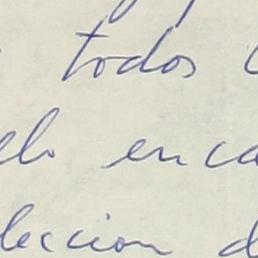 todos
elo enca
leccion d